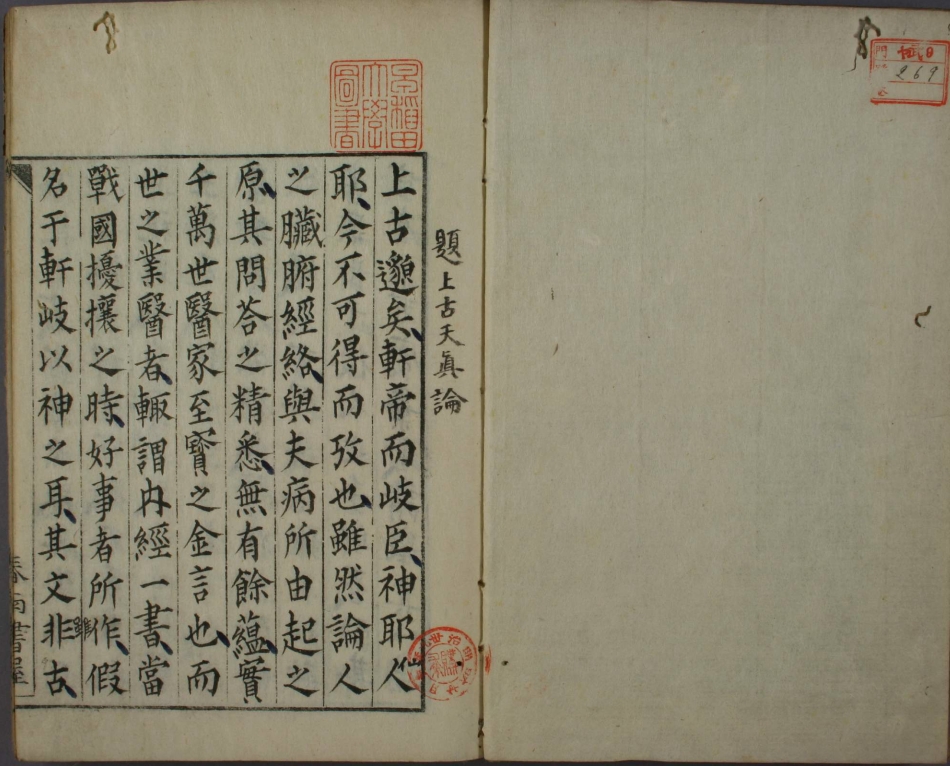 門
269
早稲田
大學
圖書
題上古天眞論
上古邈矣、軒帝而岐臣、神耶仙人
耶、今不可得而攷也、雖然論人
之臟腑經絡、與夫病所由起之
原、其問荅之精悉、無有餘蘊、實
千萬世醫家至寳之金言也、而
世之業醫者、輙謂内經一書、當
戰國擾攘之時、好事者所作、假
名于軒岐以神之耳、其文雖非古、
春雨書屋